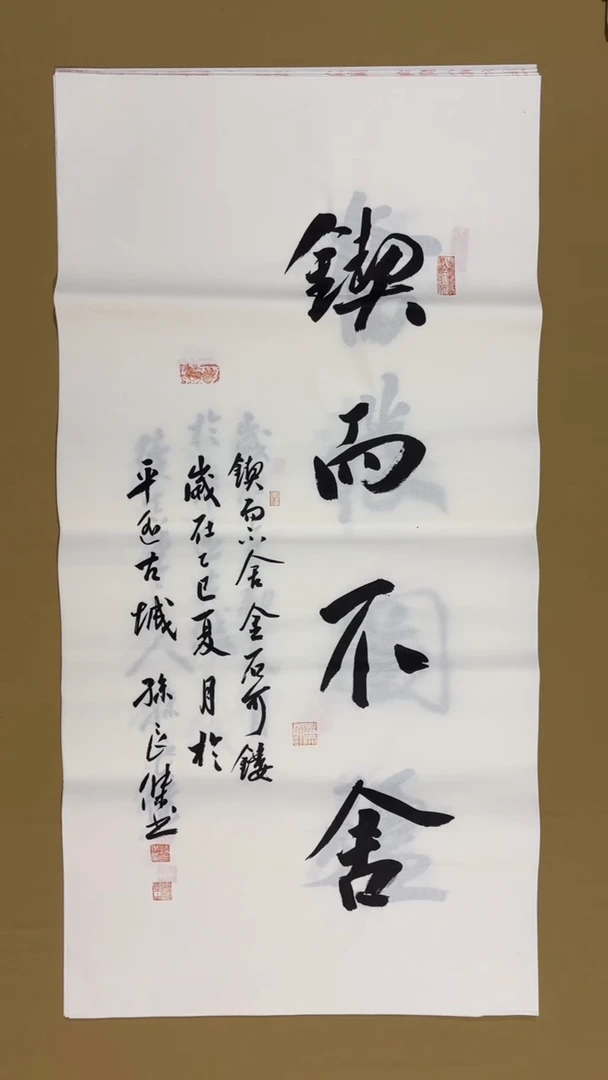 鍥而不舍
鍥而不舍金石可鏤
歲在乙巳夏月於
平遥古城 孫良傑书